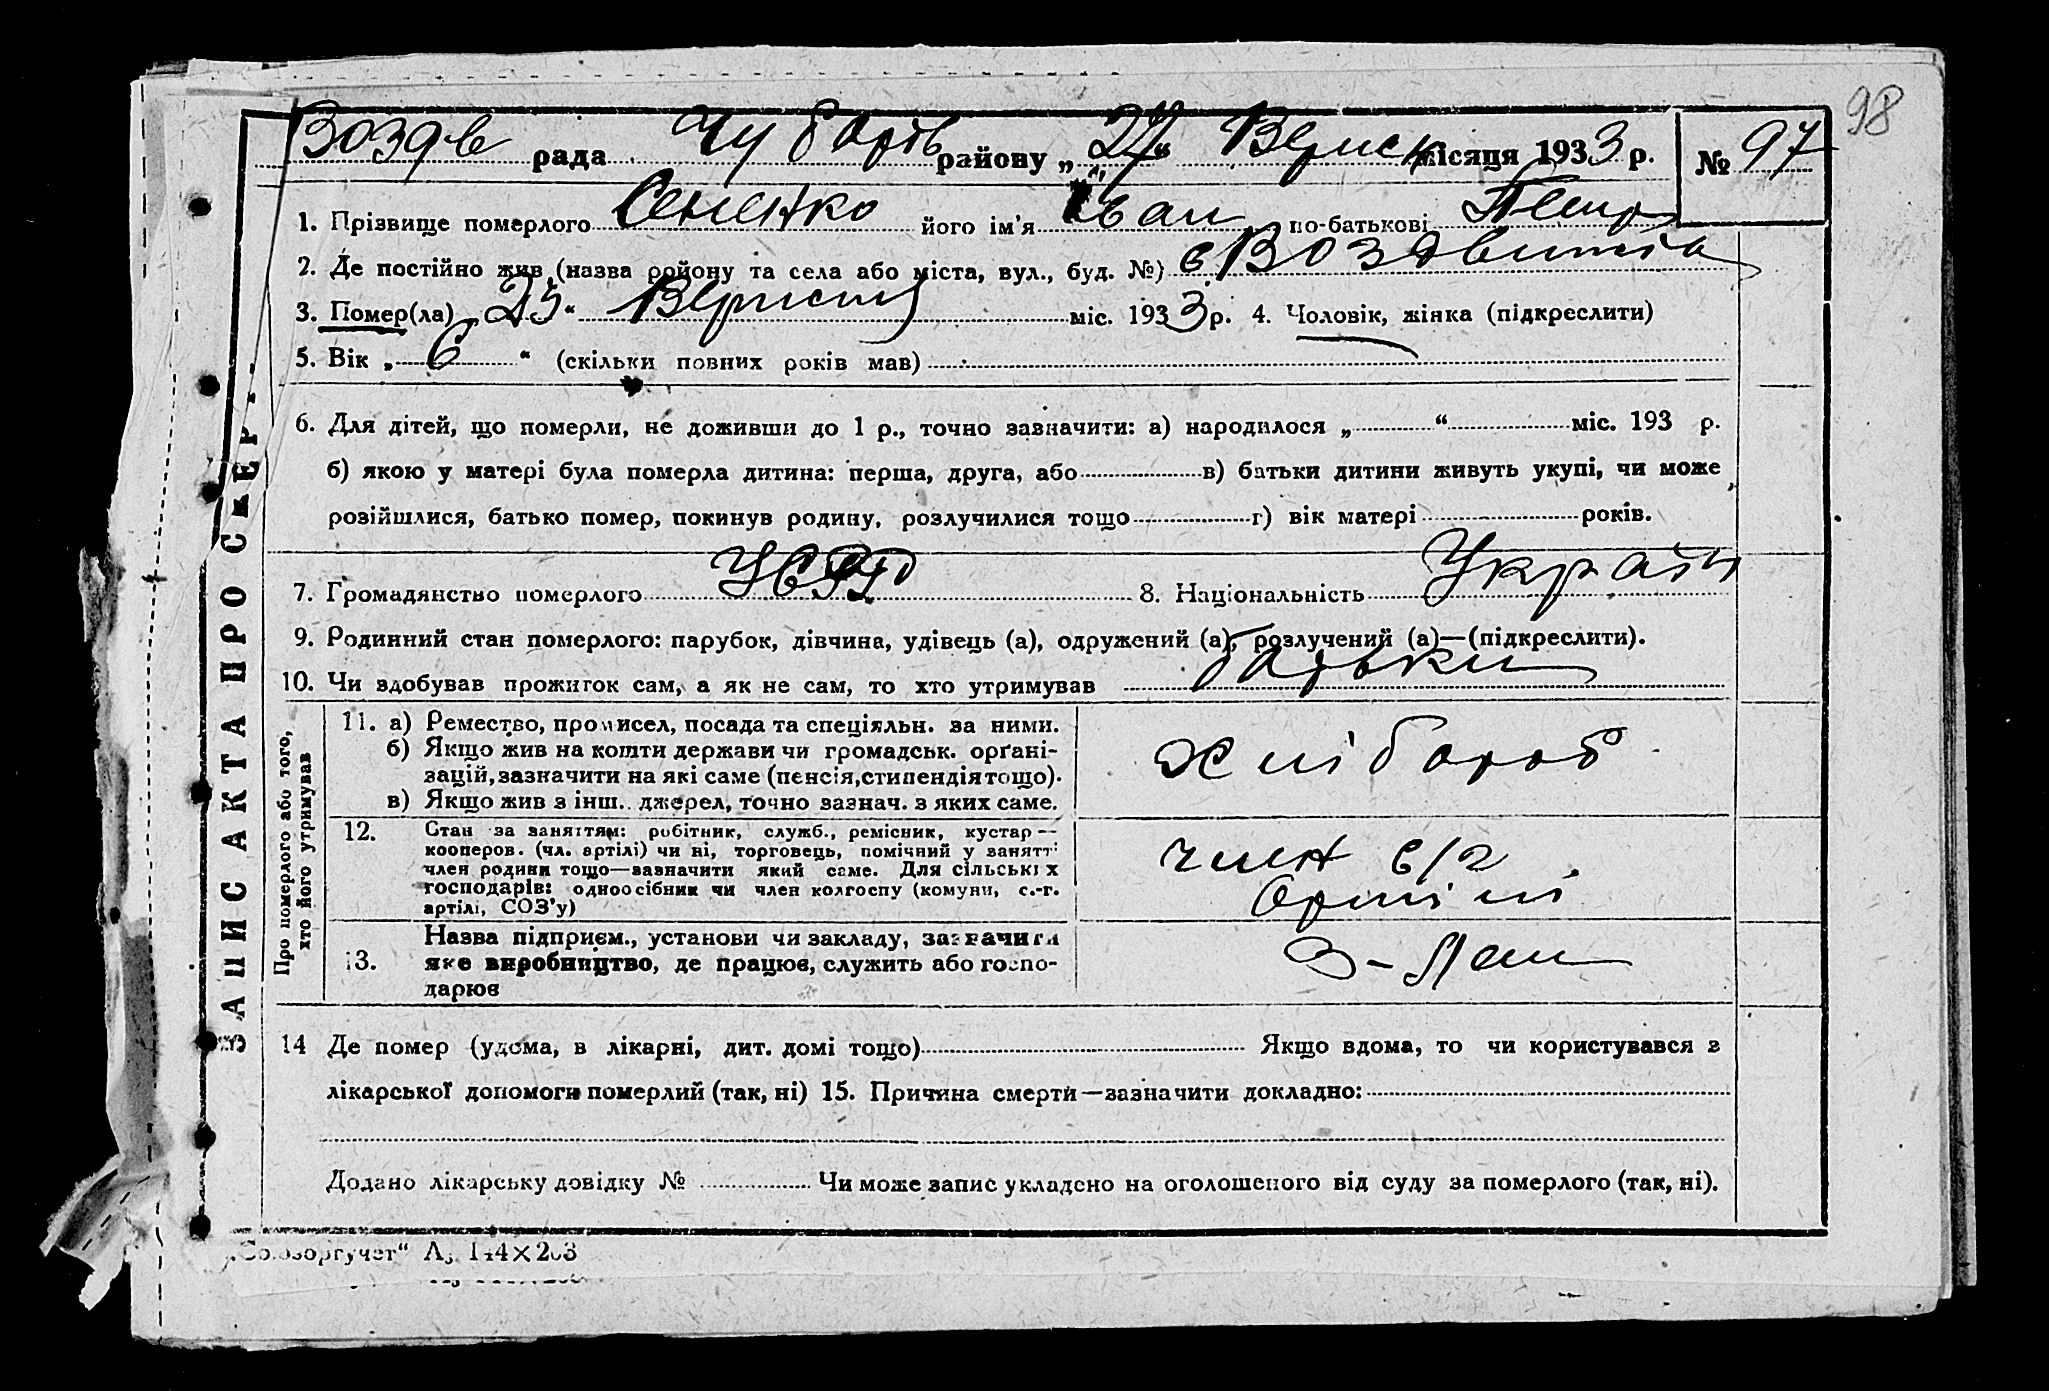 98
Воздв рада Чубарів району „27“ Вересн місяця 1933 р. № 97
1. Прізвище померлого Сененко його ім'я Іван по-батькові Петр
2. Де постійно жив (назва району та села або міста, вул., буд. №) с Воздвижка
3. Помер(ла) „25“ Вересня міс. 1933 р. 4. Чоловік, жінка (підкреслити)
5. Вік „6“ (скільки повних років мав)
6. Для дітей, що померли, не доживши до 1 р., точно зазначити: а) народилося „ “ міс. 193 р.
б) якою у матері була померла дитина: перша, друга, або в) батьки дитини живуть укупі, чи може
розійшлися, батько помер, покинув родину, розлучилися тощо г) вік матері років.
7. Громадянство померлого УСРР 8. Національність Україн
9. Родинний стан померлого: парубок, дівчина, удівець (а), одружений (а), розлучений (а)—(підкреслити).
10. Чи здобував прожиток сам, а як не сам, то хто утримував батьки
ЗАПИС АКТА ПРО СМЕР
Про померлого або того,
хто його утримував
11. а) Ремество, промисел, посада та спеціяльн. за ними.
б) Якщо жив на кошти держави чи громадськ. орґані-
зацій, зазначити на які саме (пенсія, стипендія тощо).
в) Якщо жив з інш. джерел, точно зазнач. з яких саме.
хлібороб
12. Стан за заняттям: робітник, служб., ремісник, кустар—
кооперов. (чл. артілі) чи ні, торговець, помічний у занятті
член родини тощо—зазначити який саме. Для сільських
господарів: одноосібник чи член колгоспу (комуни, с.-г.
артілі, СОЗ'у)
член с/г
артілі
Назва підприєм., установи чи закладу, зазначити
13. яке виробництво, де працює, служить або госпо-
дарює
14 Де помер (удома, в лікарні, дит. домі тощо) Якщо вдома, то чи користувався з
лікарської допомоги померлий (так, ні) 15. Причина смерти—зазначити докладно:
Додано лікарську довідку № Чи може запис укладено на оголошеного від суду за померлого (так, ні).
„Союзоргучет“ А₅ 144×203